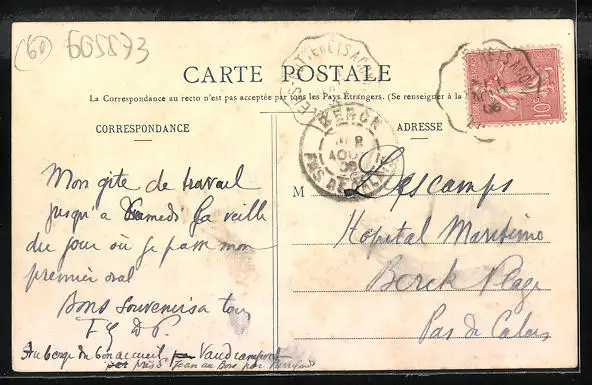 (60) 605873
CARTE POSTALE
La Correspondance au recto n'est pas acceptée par tous les Pays Étrangers. (Se renseigner à la
CORRESPONDANCE
ADRESSE
BERCK
AOUT
PAS DE CALAIS
10
Mon gîte de travail
jusqu'à Samedi Ça veille
du jour où je passe mon
premier oral
Bons souvenirs à tous
Auberge du bon accueil Vaudrampont
près St Jean au Bois par
M Lescamps
Hopital Maritime
Berck Plage
Pas de Calais